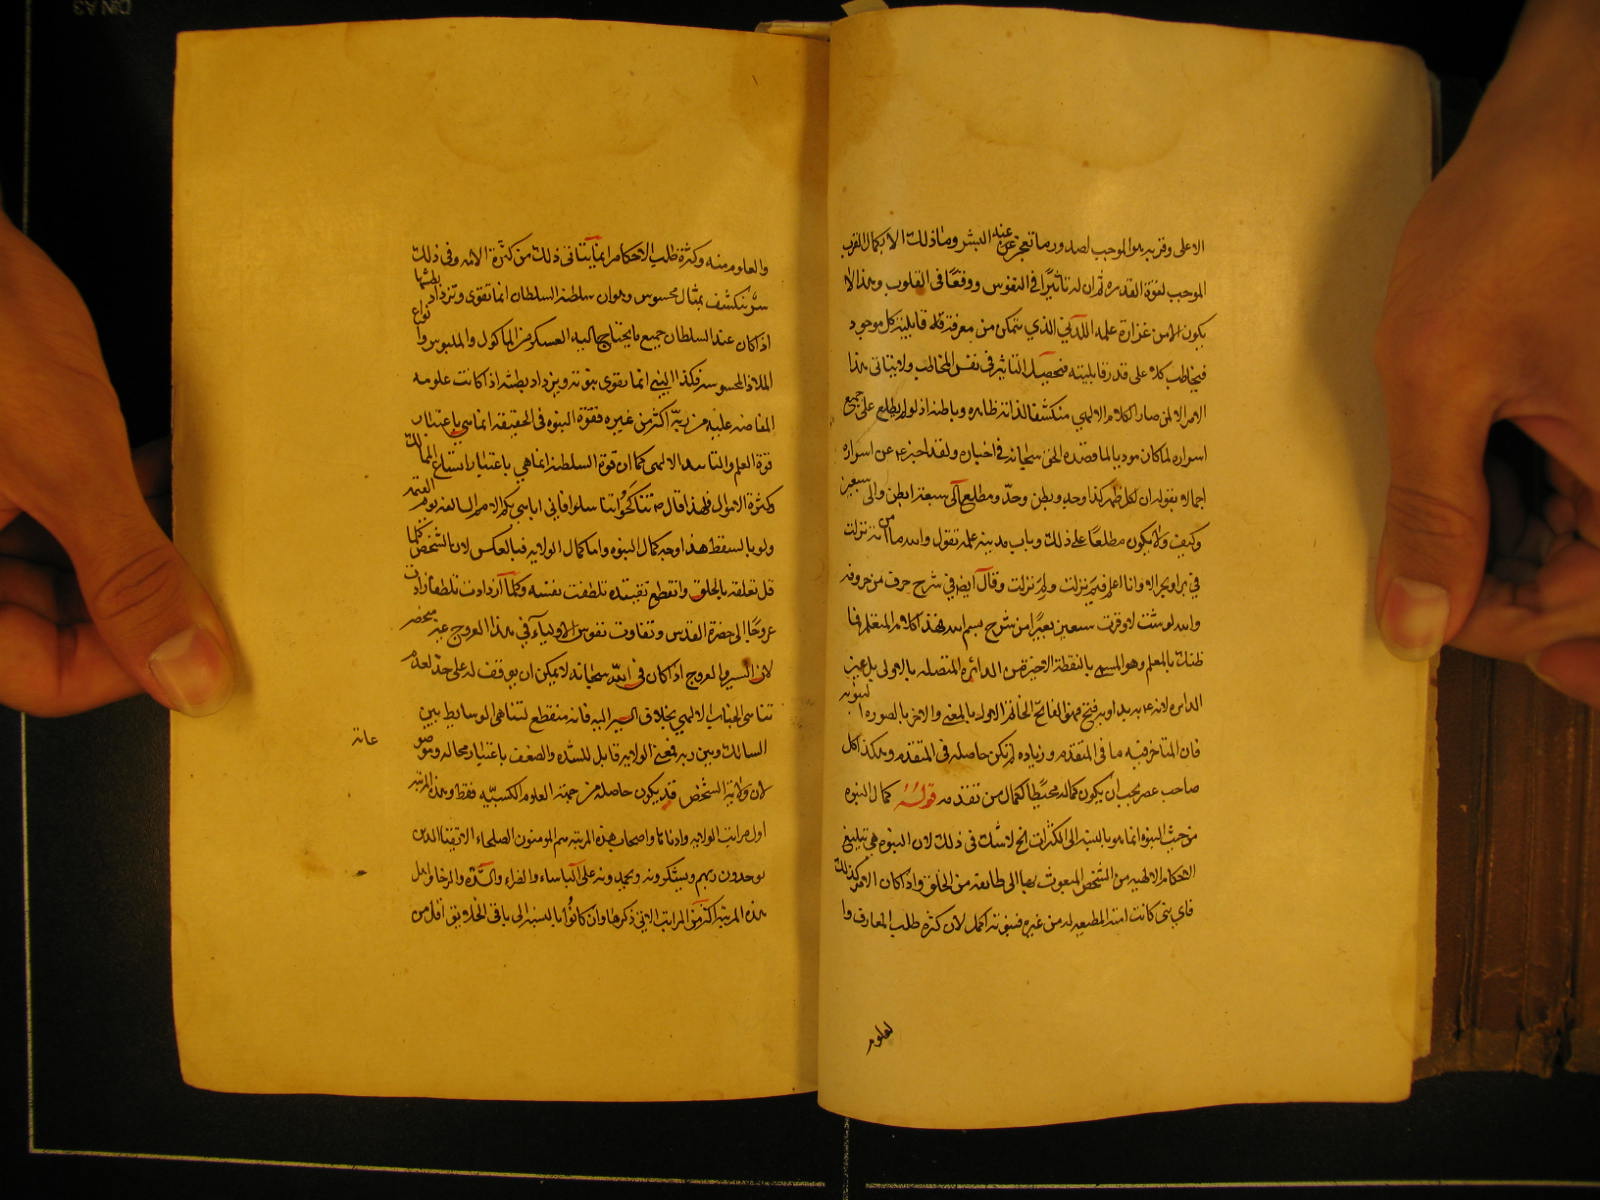 الاعلى وقربه هو الموجب لصدور ما تعجز عنه البشر وما ذلك الا بكمال القرب
الموجب لقوة القدره ثم ان له تاثيرًا في النفوس ووقعًا في القلوب وهذا لا
يكون الا من غزارة علمه اللدني الذي يتمكن من معرفته قابلية كل موجود
فيخاطب كلا على قدر قابليته فيحصل التاثير في نفس المخاطب ولا يتاتى هذا
الامر الا لمن صار الكلام الالهي منكشفا لذاته ظاهره وباطنه اذ لو لم يطلع على جميع
اسراره لما كان موديا لما قصده الحق سبحانه في اخباره ولقد اخبر عن اسراره
اجمالا بقوله ان لكل ظهر وبطن وحد ومطلع الى سبعة ابطن والى سبعين
وكيف لا يكون مطلعًا على ذلك وباب مدينة علمه تقول والله ما من آية نزلت
في بر او بحر الا وانا اعلم فيم نزلت ولم نزلت وقال ايضا في شرح حرف من حروفه
والله لو شئت لاوقرت سبعين بعيرًا من شرح بسم الله فهذا كلام المتعلم فما
ظنك بالمعلم وهو المسمى بالنقطة الاخيرة من الدائرة المتصله بالاولى بل عين
الدايره لانه به بدا وبه فتح فهو الفاتح الخاتم الاول بالمعنى والاخر بالصورة
فان المتاخر فيه ما في المتقدم وزياده لم تكن حاصله في المتقدم وهكذا كل
صاحب عصر يجب ان يكون كماله محيطًا بكمال من تقدمه قوله كمال النبوه
من حيث النبوه انما هو بالنسبة الى الكثرات الخ لا شك في ذلك لان النبوه هي تبليغ
الاحكام الالهيه من الشخص المبعوث بها الى طائفه من الخلق واذا كان الامر كذلك
فاي نبي كانت امته المطيعه له من غيره فنبوته اكمل لان كثرة طلب المعارف وا
لعلوم
والعلوم منه وكثرة طلب الاحكام انما يتاتى ذلك من كثرة الامه وفي ذلك
سر ينكشف بمثال محسوس وهو ان سلطنة السلطان انما تقوى وتزداد بطشها
اذا كان عند السلطان جميع ما يحتاج اليه العسكر من الماكول والملبوس وانواع
الملاذ المحسوسه فكذا النبي انما تقوى نبوته ويزداد بطشه اذا كانت علومه
المفاضه عليه من ربه اكثر من غيره فقوة النبوه في الحقيقه انما هي باعتبار
قوة العلم والتاييد الالهي كما ان قوة السلطنة انما هي باعتبار اتساع الممالك
وكثرة الاموال فلهذا قال ص تناكحوا تناسلوا فاني اباهي بكم الامم السالفه يوم القيمة
ولو بالسقط هذا وجه كمال النبوه واما كمال الولايه فبالعكس لان الشخص كلما
قل تعلقه بالخلق وانقطع تقيده تلطفت نفسه وكلما ازدادت تلطفا زادت
عروجًا الى حضرة القدس وتفاوت نفوس الاولياء في هذا العروج غير منحصر
لان السير والعروج اذا كان في الله سبحانه لا يمكن ان يوقف له على حد لعدم
تناهي الجناب الالهي بخلاف السير اليه فانه منقطع لتناهي الوسايط بين
السالك وبين ربه فمعنى الولايه قابل للشده والضعف باعتبار محاله وموضوعاته
لان ولاية الشخص قد يكون حاصله من جهة العلوم الكسبيه فقط وهذه المرتبه
اول مراتب الولايه وادناها واصحاب هذه المرتبه هم المومنون الصلحاء الاتقيا الذين
يوحدون ربهم ويشكرونه ويحمدونه على الباساء والضراء والشده والرخا واهل
هذه المرتبه اكثر من المراتب الاتي ذكرها وان كانوا بالنسبة الى باقي الخلايق اقل من